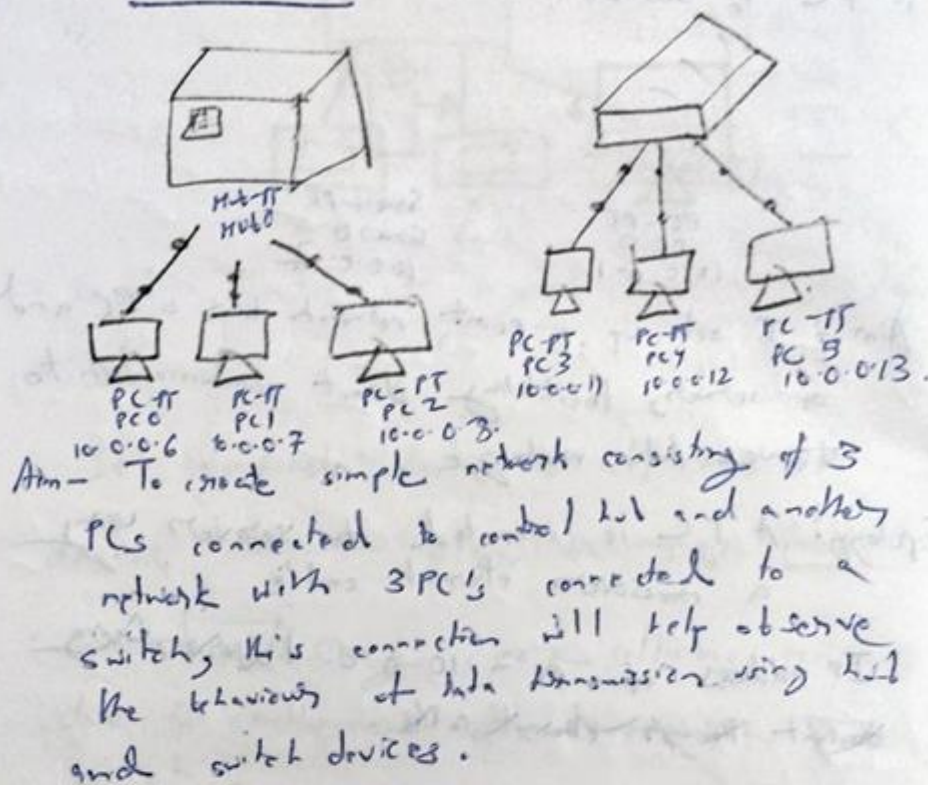 Hub-PT
Hub0
PC-PT
PC0
10.0.0.6
PC-PT
PC1
10.0.0.7
PC-PT
PC2
10.0.0.8.
PC-PT
PC3
10.0.0.11
PC-PT
PC4
10.0.0.12
PC-PT
PC 5
10.0.0.13.
Aim- To create simple network consisting of 3
PCs connected to control hub and another
network with 3PC's connected to a
switch, this connection will help observe
the behaviour of data transmission using hub
and switch devices.